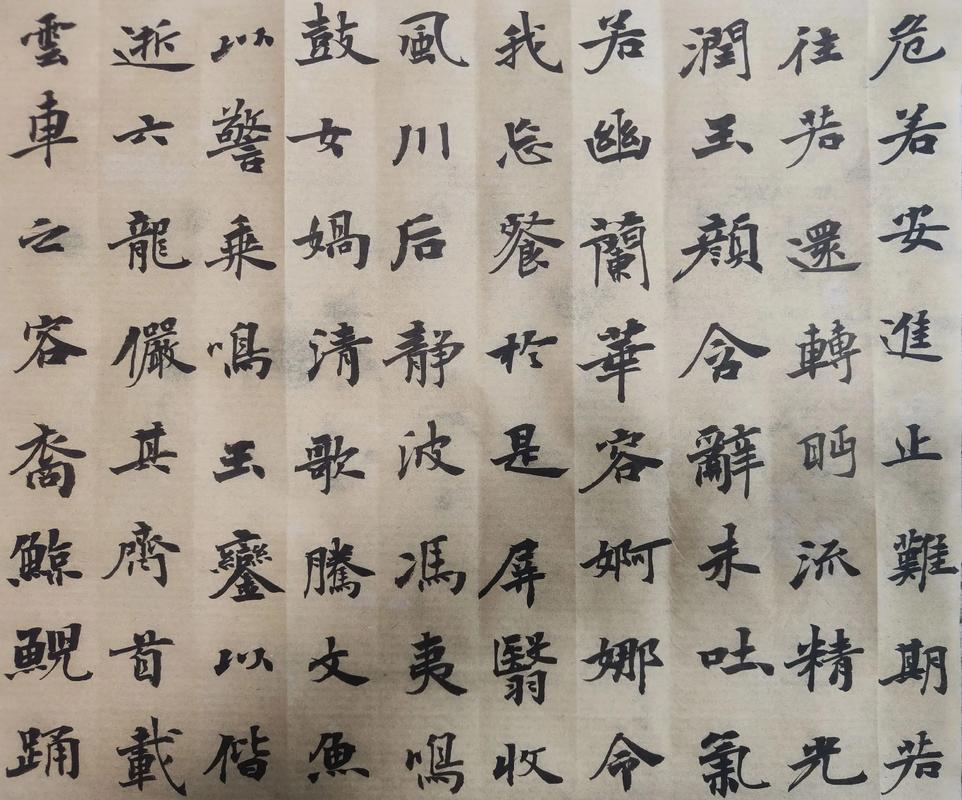 危若安進止難期若
往若還轉眄流精光
潤玉顏含辭未吐氣
若幽蘭華容婀娜命
我忘餐於是屏翳收
風川后靜波馮夷鳴
鼓女媧清歌騰文魚
以警乘鳴玉鑾以偕
逝六龍儼其齊首載
雲車之容裔鯨鯢踊